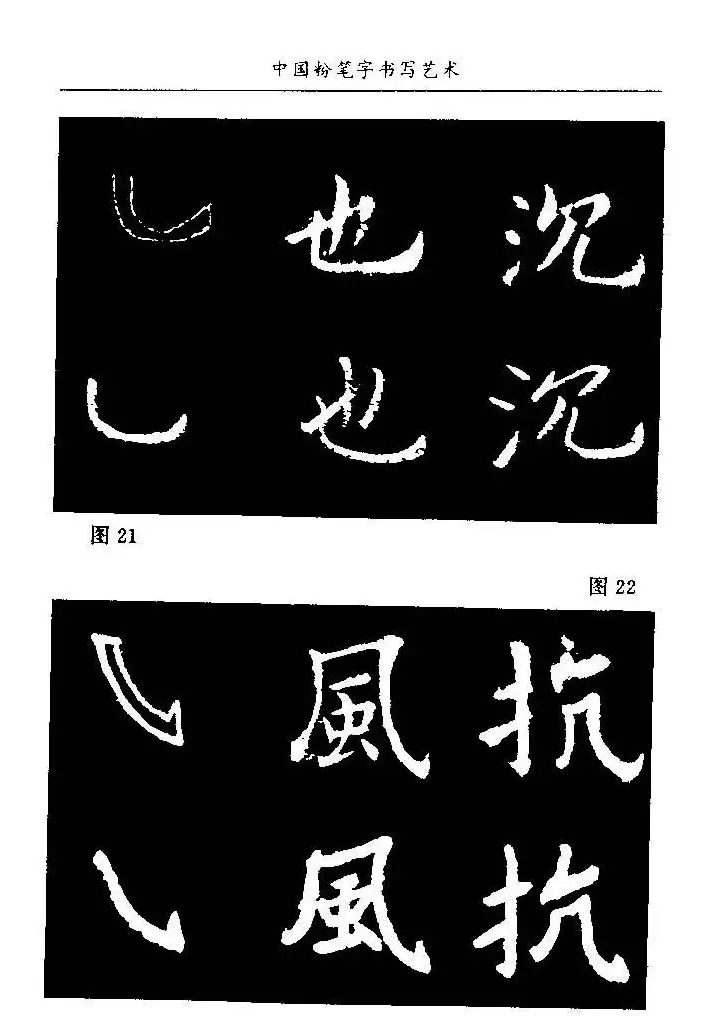 中国粉笔字书写艺术
也 沉
也 沉
图 21
图 22
風 抗
風 抗